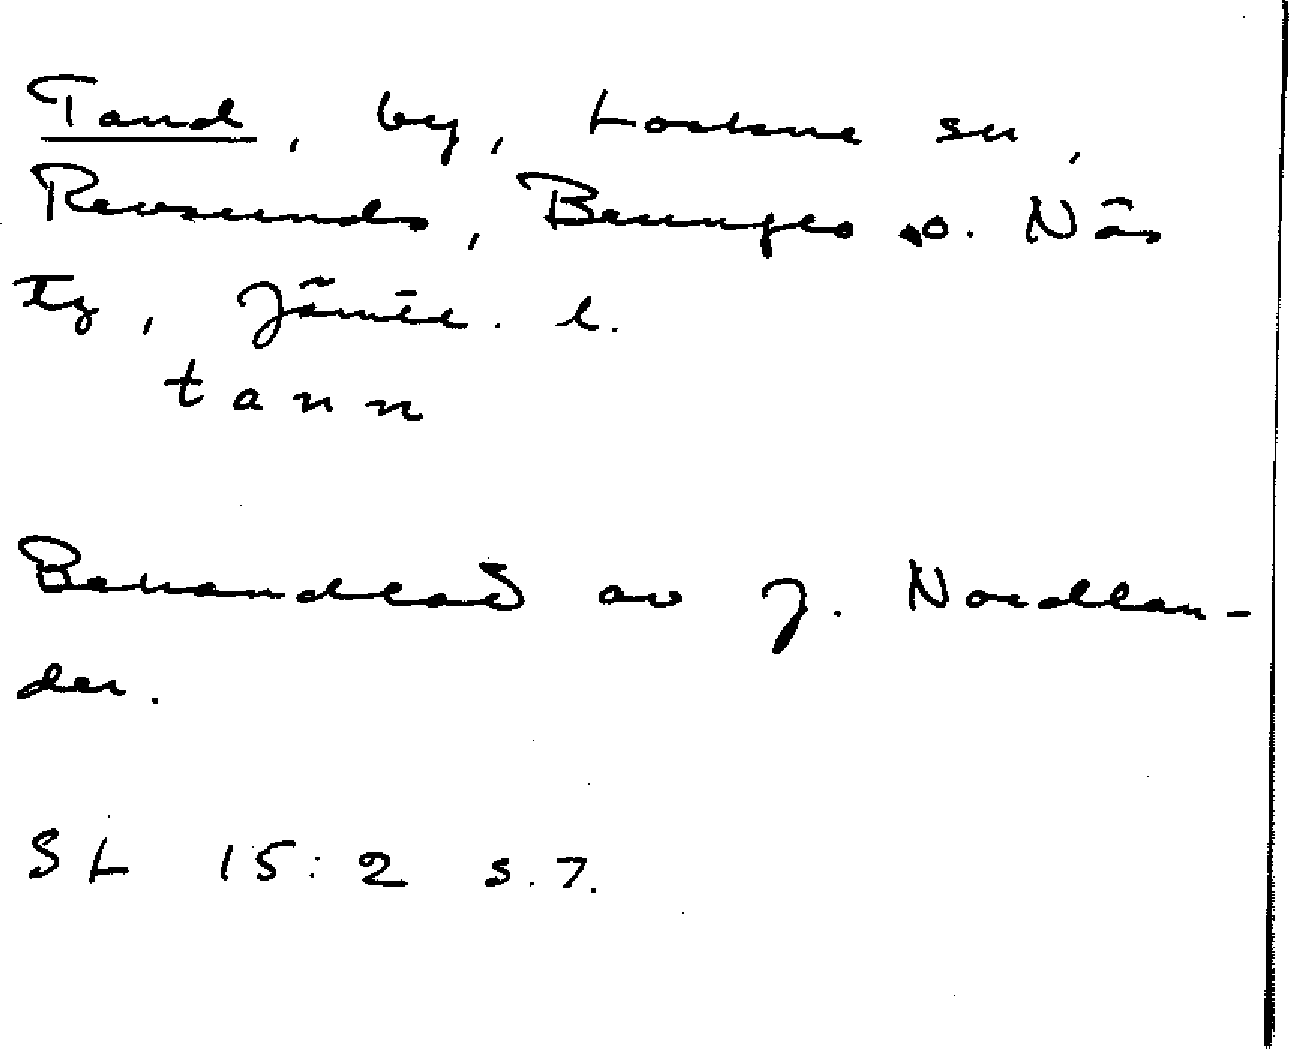 Tand, by, Lockne sn,
Revsunds, Brunflo o. Näs
tg, Jämtl. l.
tann
Behandlad av J. Nordlan-
der.
SL 15:2 s. 7.